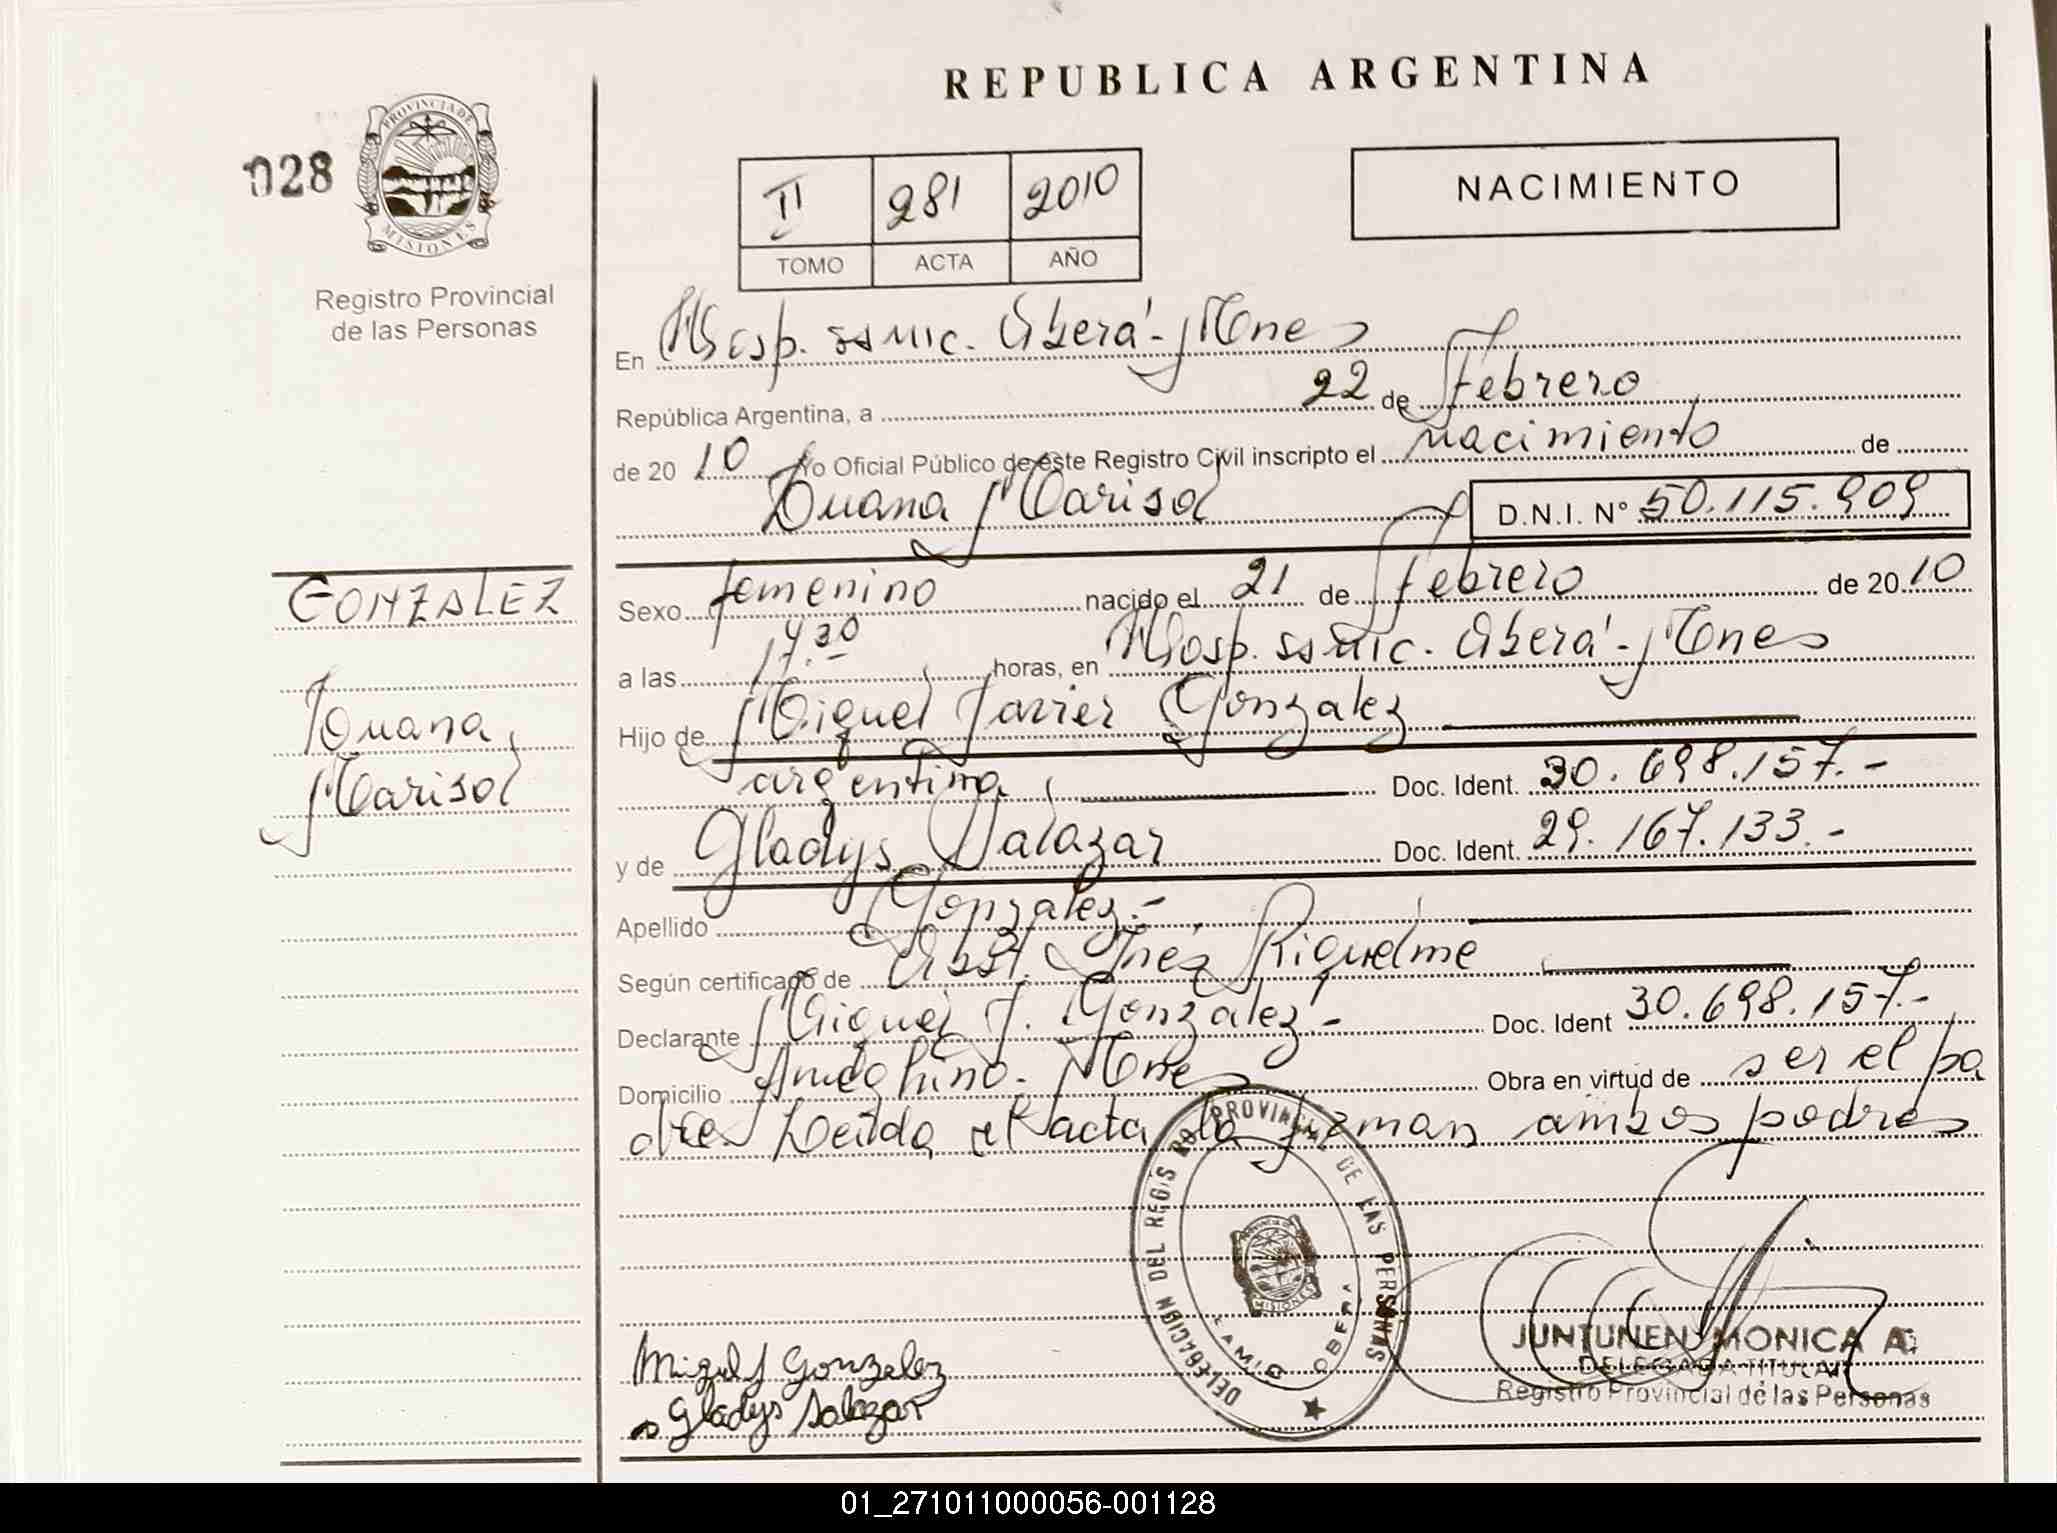 REPUBLICA ARGENTINA
028
PROVINCIA DE
MISIONES
Registro Provincial
de las Personas
NACIMIENTO
II 281 2010
TOMO ACTA AÑO
En Hosp. ssmic. Oberá - Mnes
República Argentina, a 22 de Febrero
de 20 10 Yo Oficial Público de este Registro Civil inscripto el nacimiento de
Duana Marisol D.N.I. Nº 50.115.909
GONZALEZ
Duana
Marisol
Sexo femenino nacido el 21 de Febrero de 20 10
a las 17.30 horas, en Hosp. ssmic. Oberá - Mnes
Hijo de Miguel Javier Gonzalez
argentina Doc. Ident. 30.698.157.-
y de Gladys Salazar Doc. Ident. 29.167.133.-
Apellido Gonzalez.-
Según certificado de Obst. Inéz Riquelme
Declarante Miguel J. Gonzalez - Doc. Ident 30.698.157.-
Domicilio Ameghino. Mnes Obra en virtud de ser el pa
dre Leida el acta la firman ambos padres
DELEGACION DEL REGIS RO PROVINCIAL DE LAS PERSONAS
MISIONES
SAMIC OBERA
Miguel J Gonzalez
Gladys Salazar
JUNTUNEN MONICA A.
DELEGADA TITULAR
Registro Provincial de las Personas
01_271011000056-001128